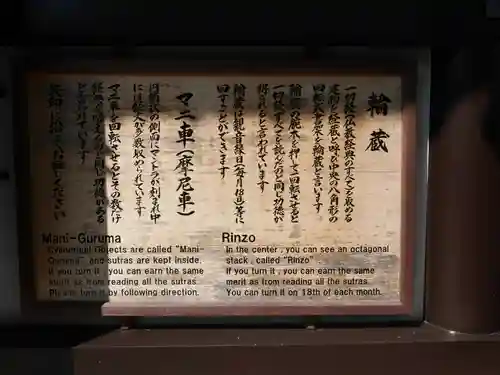 輪蔵
一切経（仏教経典のすべて）を収める
建物を経蔵と呼び中央の八角形の
回転式書架を輪蔵と言います
輪蔵の腕木を押して一回転させると
一切経すべてを読んだのと同じ功徳が
得られると言われています
輪蔵は観音縁日（毎月18日）等に
回すことができます
マニ車（摩尼車）
円筒形の側面にマントラが刻まれ中
には経文が多数収められています
マニ車を回転させるとその数だけ
経典を読むのと同じ功徳がある
と言われています
矢印に沿ってお回しください
Mani-Guruma
Cylindrical Objects are called "Mani-
Guruma" and sutras are kept inside.
If you turn it, you can earn the same
merit as from reading all the sutras.
Please turn it by following direction.
Rinzo
In the center, you can see an octagonal
stack, called "Rinzo".
If you turn it, you can earn the same
merit as from reading all the sutras.
You can turn it on 18th of each month.